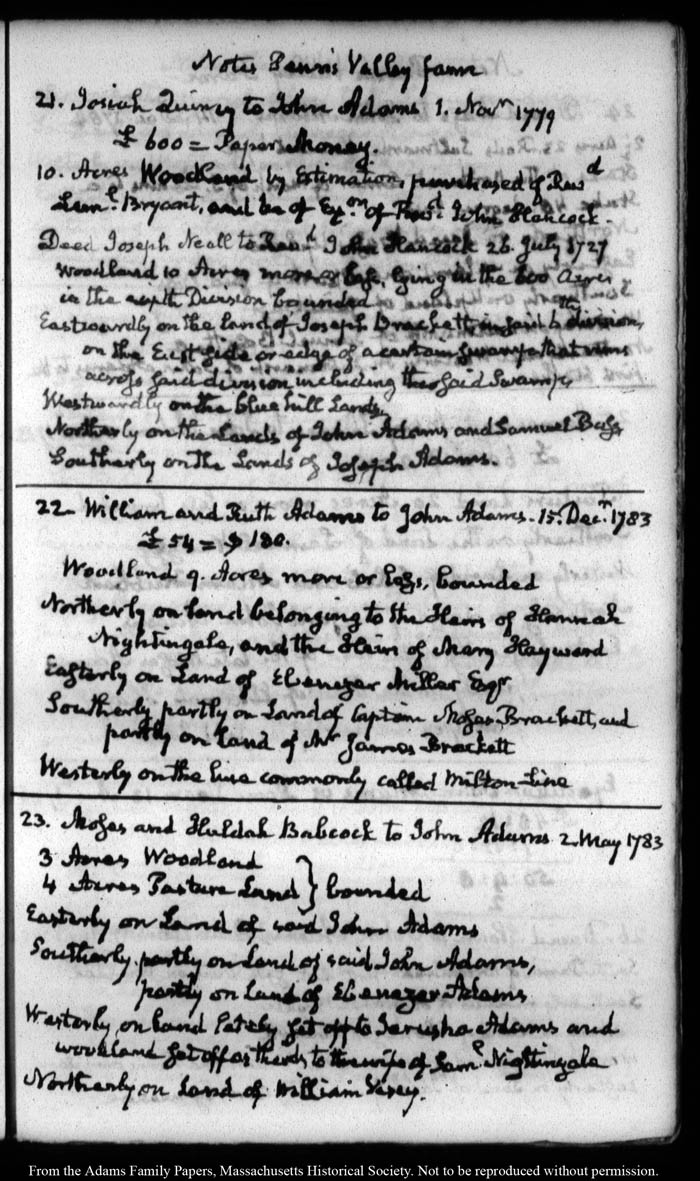 Notes Penn's Valley farm
21. Josiah Quincy to John Adams 1. Novr 1779
£ 600 = Paper Money.
10. Acres Woodland by Estimation, purchased of Revd
Leml. Bryant, and he of Exrs of Revd. John Hancock.
Deed Joseph Neall to Revd John Hancock 26. July 1727
Woodland 10 Acres more or less, lying in the 600 Acres
in the sixth Division bounded
Eastwardly on the land of Joseph Brackett in said 6th division,
on the East side or edge of a certain swamp that runs
across said division including the said Swamp,
Westwardly on the blue hill Lands,
Northerly on the Lands of John Adams and Samuel Bass
Southerly on the Lands of Joseph Adams.
22. William and Ruth Adams to John Adams. 15. Decr. 1783
£ 54 = $ 180.
Woodland 9. Acres more or less, bounded
Northerly on land belonging to the Heirs of Hannah
Nightingale, and the Heirs of Mary Hayward
Easterly on Land of Ebenezer Miller Esqr
Southerly partly on Land of Captain Moses Brackett, and
partly on Land of Mr James Brackett
Westerly on the line commonly called Milton-Line
23. Moses and Huldah Babcock to John Adams 2. May 1783
3 Acres Woodland
4 Acres Pasture Land } bounded
Easterly on Land of said John Adams
Southerly partly on Land of said John Adams,
partly on Land of Ebenezer Adams
Westerly on Land lately set off to Jerusha Adams and
woodland set off as thirds to the wife of Saml. Nightingale
Northerly on Land of William Vesey.
From the Adams Family Papers, Massachusetts Historical Society. Not to be reproduced without permission.